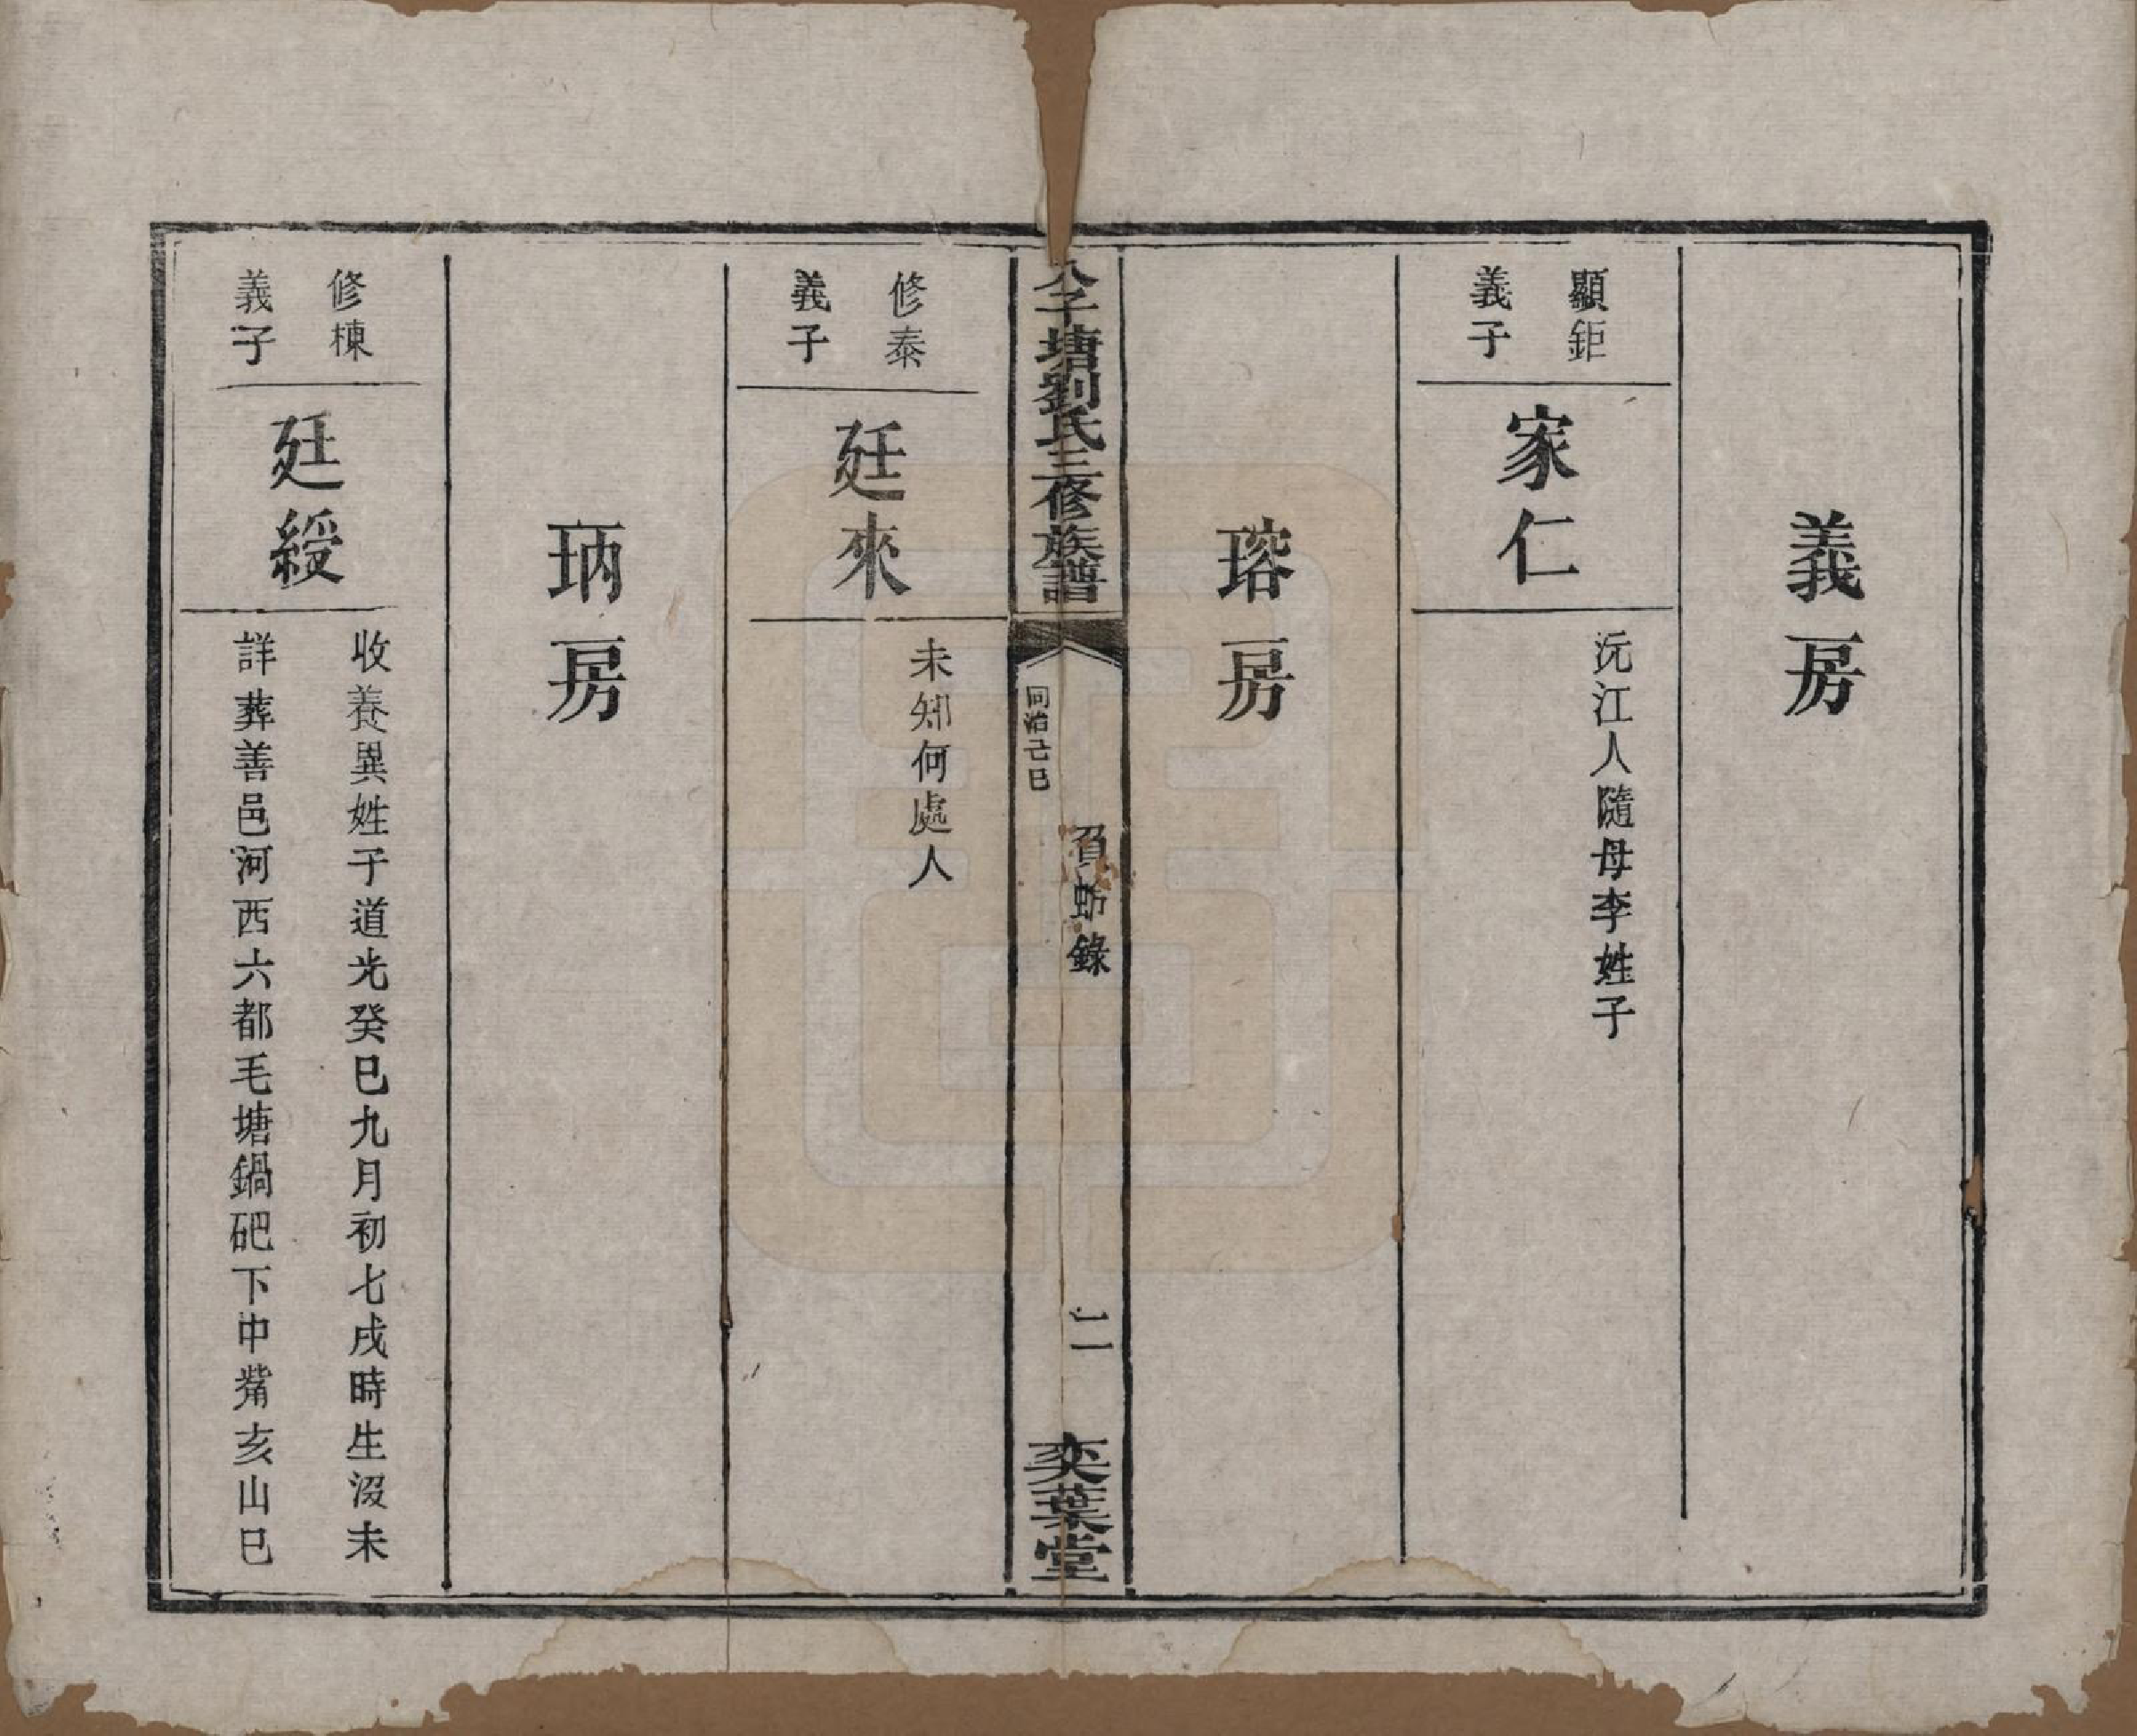 義房
顯鉅
義子
家仁
沅江人隨母李姓子
瑢房
八子塘劉氏三修族譜
同治己巳
負蛉錄
二
奕葉堂
修泰
義子
廷來
未知何處人
珃房
修棟
義子
廷綬
收養異姓子道光癸巳九月初七戌時生沒未
詳葬善邑河西六都毛塘鍋䂻下中觜亥山巳